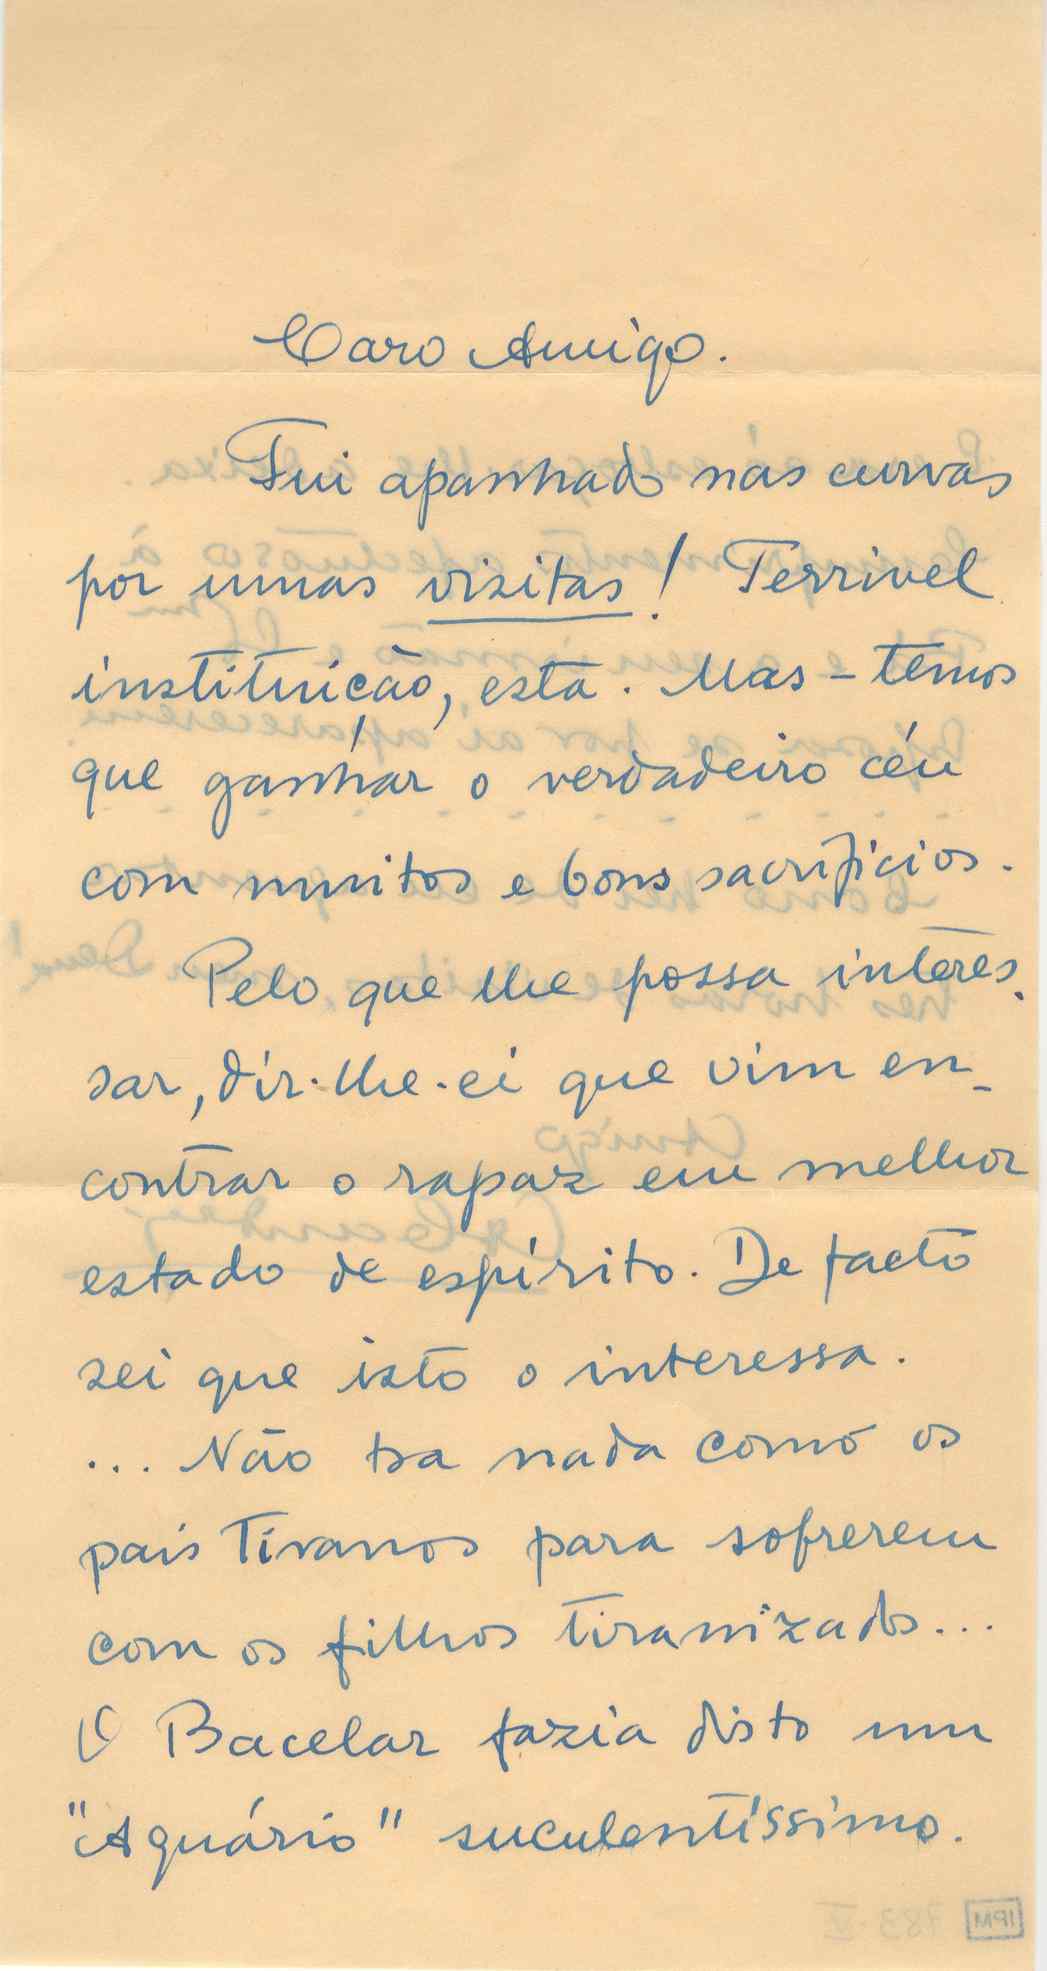 Caro Amigo.
Fui apanhado nas curvas
por umas visitas! Terrivel
instituição, esta. Mas – temos
que ganhar o verdadeiro céu
com muitos e bons sacrifícios.
Pelo que lhe possa interes-
sar, dir-lhe-ei que vim en-
contrar o rapaz em melhor
estado de espírito. De facto
sei que isto o interessa.
... Não há nada como os
pais tiranos para sofrerem
com os filhos tiranizados...
O Bacelar fazia disto um
"Aquário" suculentíssimo.
IPM 783-V